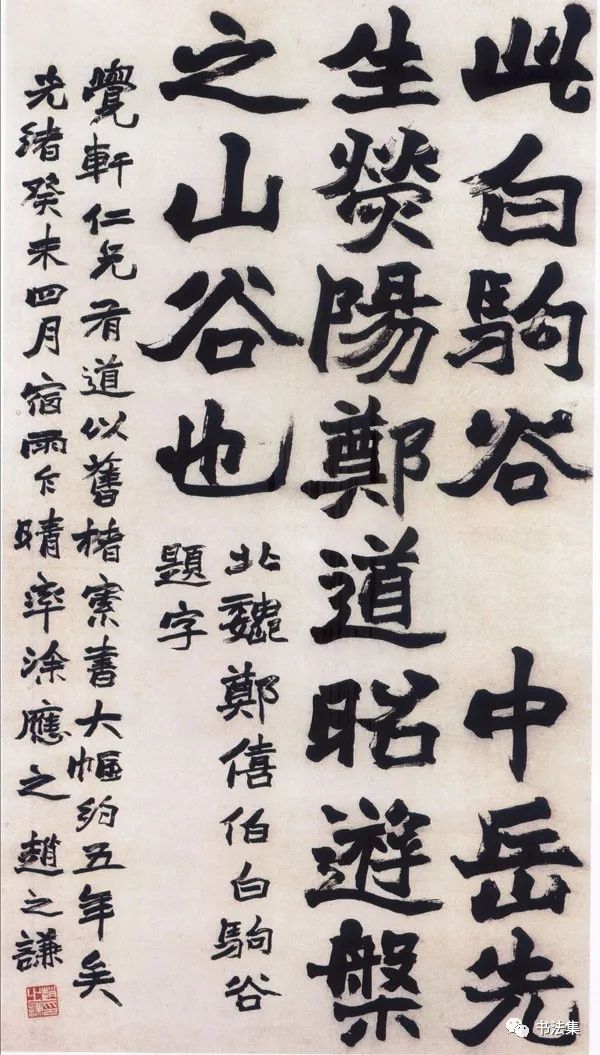 此白駒谷 中岳先
生熒陽鄭道昭遊槃
之山谷也
北魏鄭僖伯白駒谷
題字
覺軒仁兄有道以舊楮索書大幅約五年矣
光緒癸未四月宿雨乍晴率涂應之趙之謙
书法集